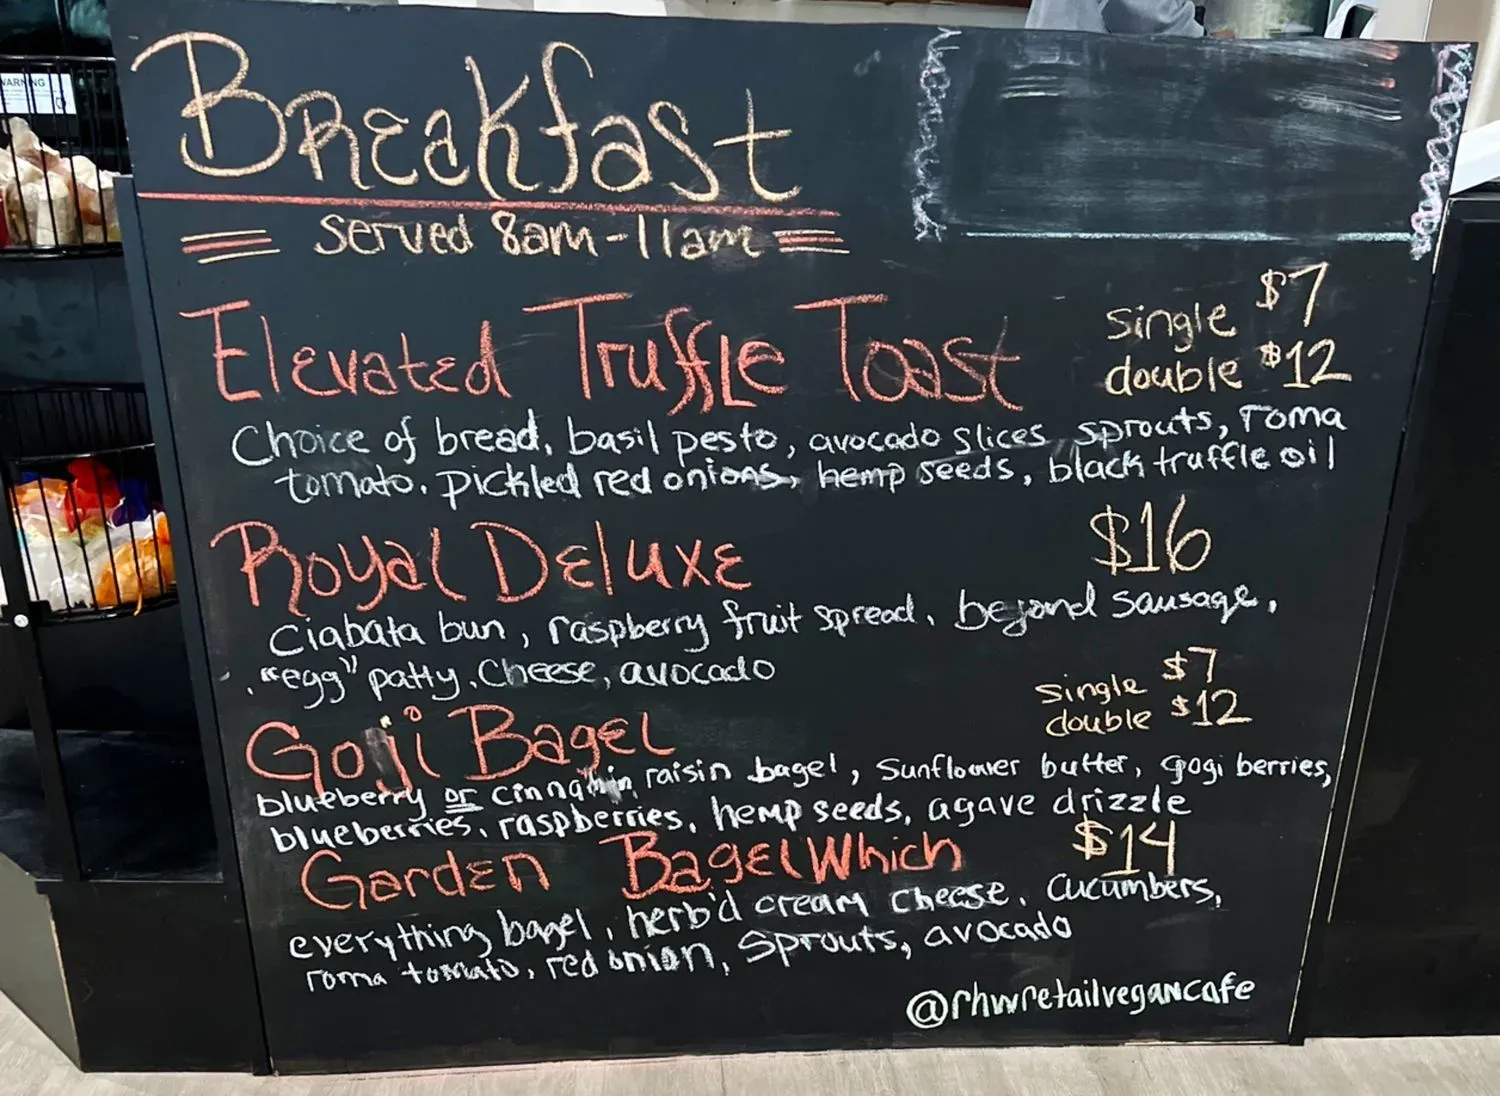 WARNING
Breakfast
served 8am-11am
Elevated Truffle Toast
single $7
double $12
Choice of bread, basil pesto, avocado slices, sprouts, roma
tomato, pickled red onions, hemp seeds, black truffle oil
Royal Deluxe $16
Ciabata bun, raspberry fruit spread, beyond sausage,
"egg" patty, Cheese, avocado
single $7
double $12
Goji Bagel
blueberry or cinnamin raisin bagel, sunflower butter, gogi berries,
blueberries, raspberries, hemp seeds, agave drizzle
Garden BagelWhich $14
everything bagel, herb'd cream cheese, cucumbers,
roma tomato, red onion, sprouts, avocado
@rhwretailvegancafe